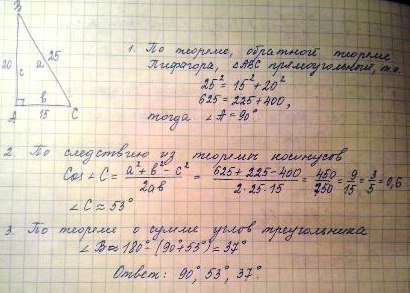 B
20
c
a
25
b
A
15
C
1. По теореме, обратной теореме
Пифагора, △ABC прямоугольный, т.к.
25² = 15² + 20²
625 = 225 + 400,
тогда ∠A = 90°
2 По следствию из теоремы косинусов
Cos∠C = (a² + b² - c²)/(2ab) = (625 + 225 - 400)/(2·25·15) = 450/750 = 9/15 = 3/5 = 0,6
∠C ≈ 53°
3. По теореме о сумме углов треугольника
∠B ≈ 180° - (90° + 53°) = 37°
Ответ: 90°, 53°, 37°.